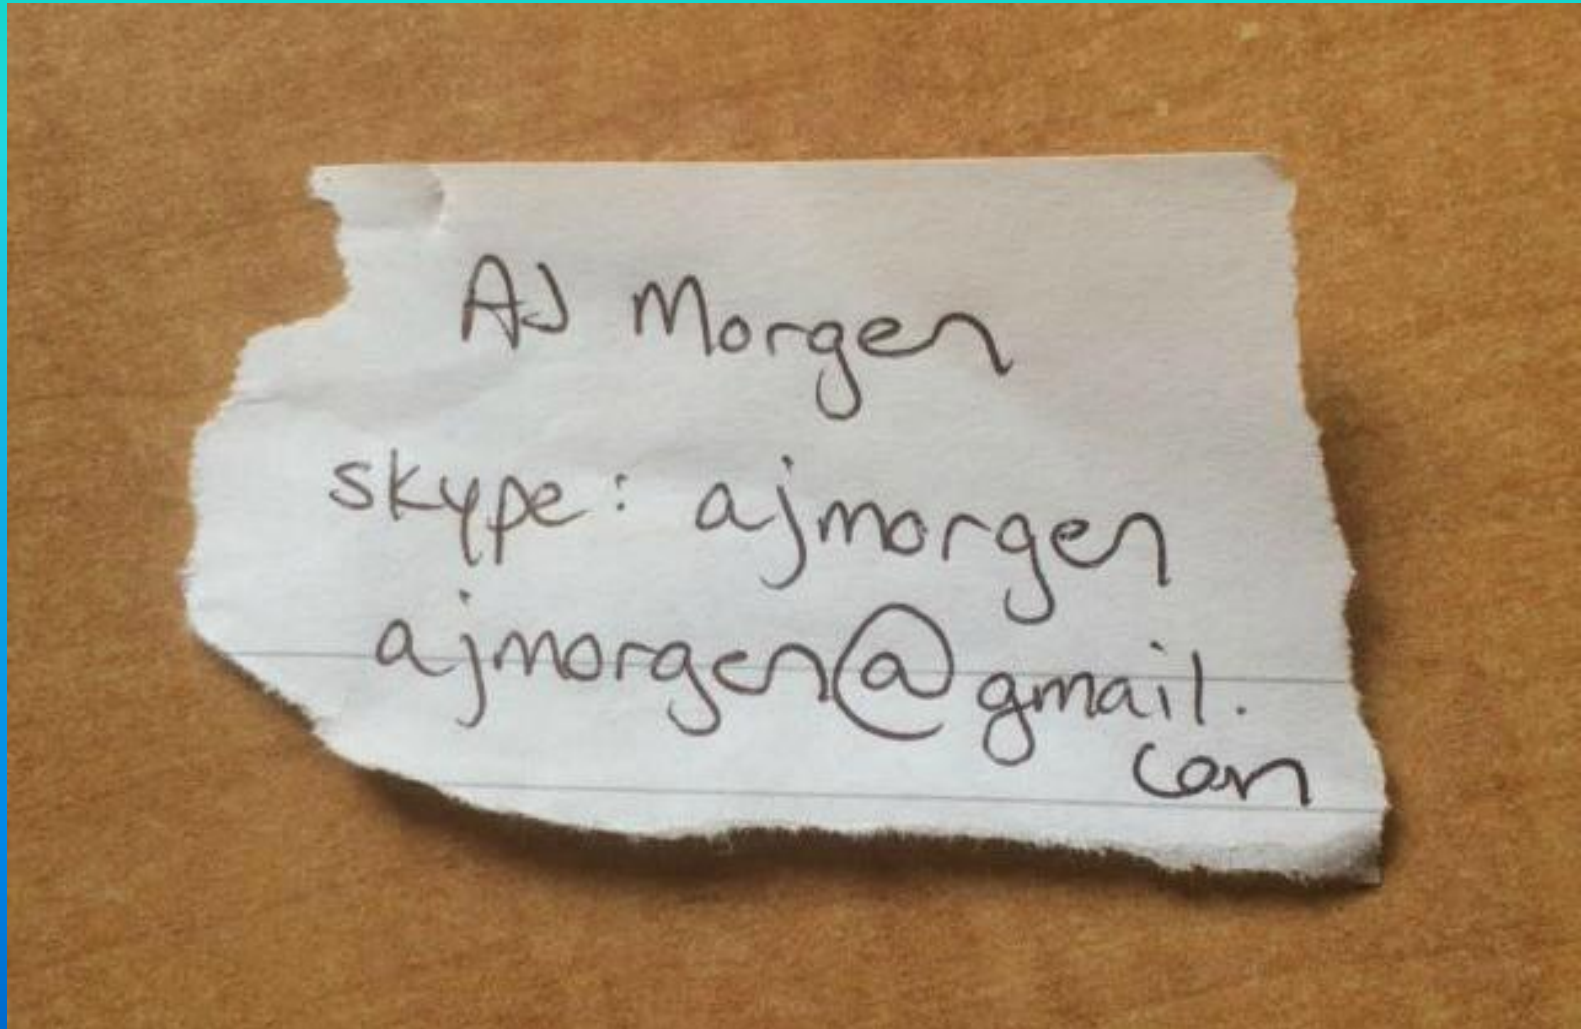 AJ Morgen
skype: ajmorgen
ajmorgen@gmail.
com